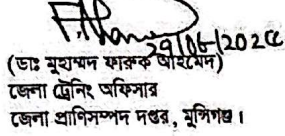 29/06/202৫
(ডাঃ মুহাম্মদ ফারুক আহমেদ)
জেলা ট্রেনিং অফিসার
জেলা প্রাণিসম্পদ দপ্তর, মুন্সিগঞ্জ।